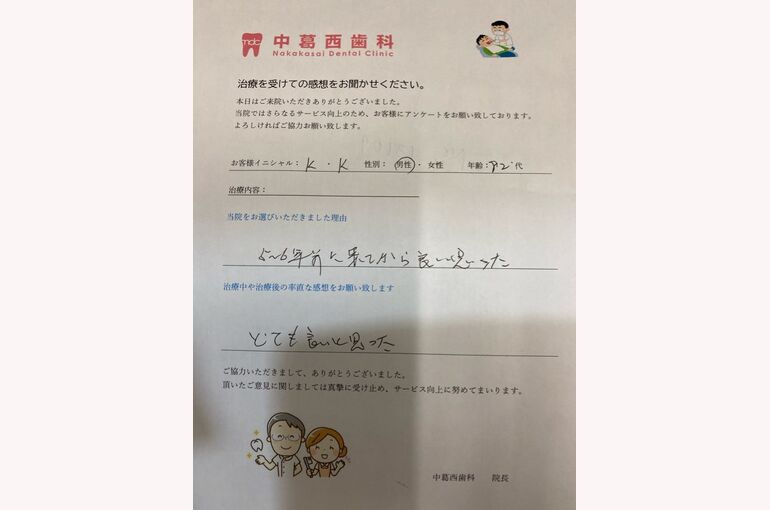 mdc
中葛西歯科
Nakakasai Dental Clinic
治療を受けての感想をお聞かせください。
本日はご来院いただきありがとうございました。
当院ではさらなるサービス向上のため、お客様にアンケートをお願い致しております。
よろしければご協力お願い致します。
お客様イニシャル： K ・ K 性別： 男性 ・ 女性 年齢： 代
治療内容：
当院をお選びいただきました理由
5〜6年前に来てから良い思った
治療中や治療後の率直な感想をお願い致します
とても良いと思った
ご協力いただきまして、ありがとうございました。
頂いたご意見に関しましては真摯に受け止め、サービス向上に努めてまいります。
中葛西歯科 院長